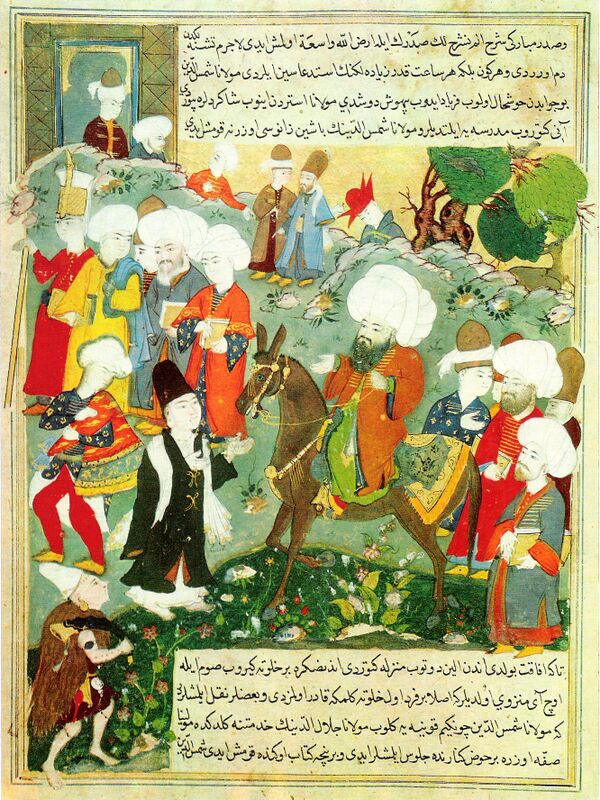 وصدر مباركی شرح الم نشرح لك صدرك ايله ارض الله واسعة اولمش ايدی لاجرم تشنه لكدن
دم اورردی وهركون بلكه هر ساعت زياده لكنك استدعاسين ايلردی مولانا شمس الدين
بو جوابدن خوشحال اولوب فرياد ايدوب بيهوش دوشدی مولانا استردن اينوب شاكردلره بيوردی
آنی كتوروب مدرسه يه ايلتديلر ومولانا شمس الدينك باشين زانوسی اوزرنه قومش ايدی
تا كه افاقت بولدی اندن الين دوتوب منزلنه كوتوردی اندنصكره بر خلوته كيروب صوم ايله
اوچ آی منزوی اولديلركه اصلا بر فرد اول خلوته كلمكه قادر اولمزدی وبعضلر نقل ايلمشلر
كه مولانا شمس الدين چونكيم قونيه يه كلوب مولانا جلال الدينك خدمتنه كلدكده مولانا
صفه اوزره بر حوض كنارنده جلوس ايلمشلر ايدی وبرنيچه كتاب اوكنده قومش ايدی شمس الدين